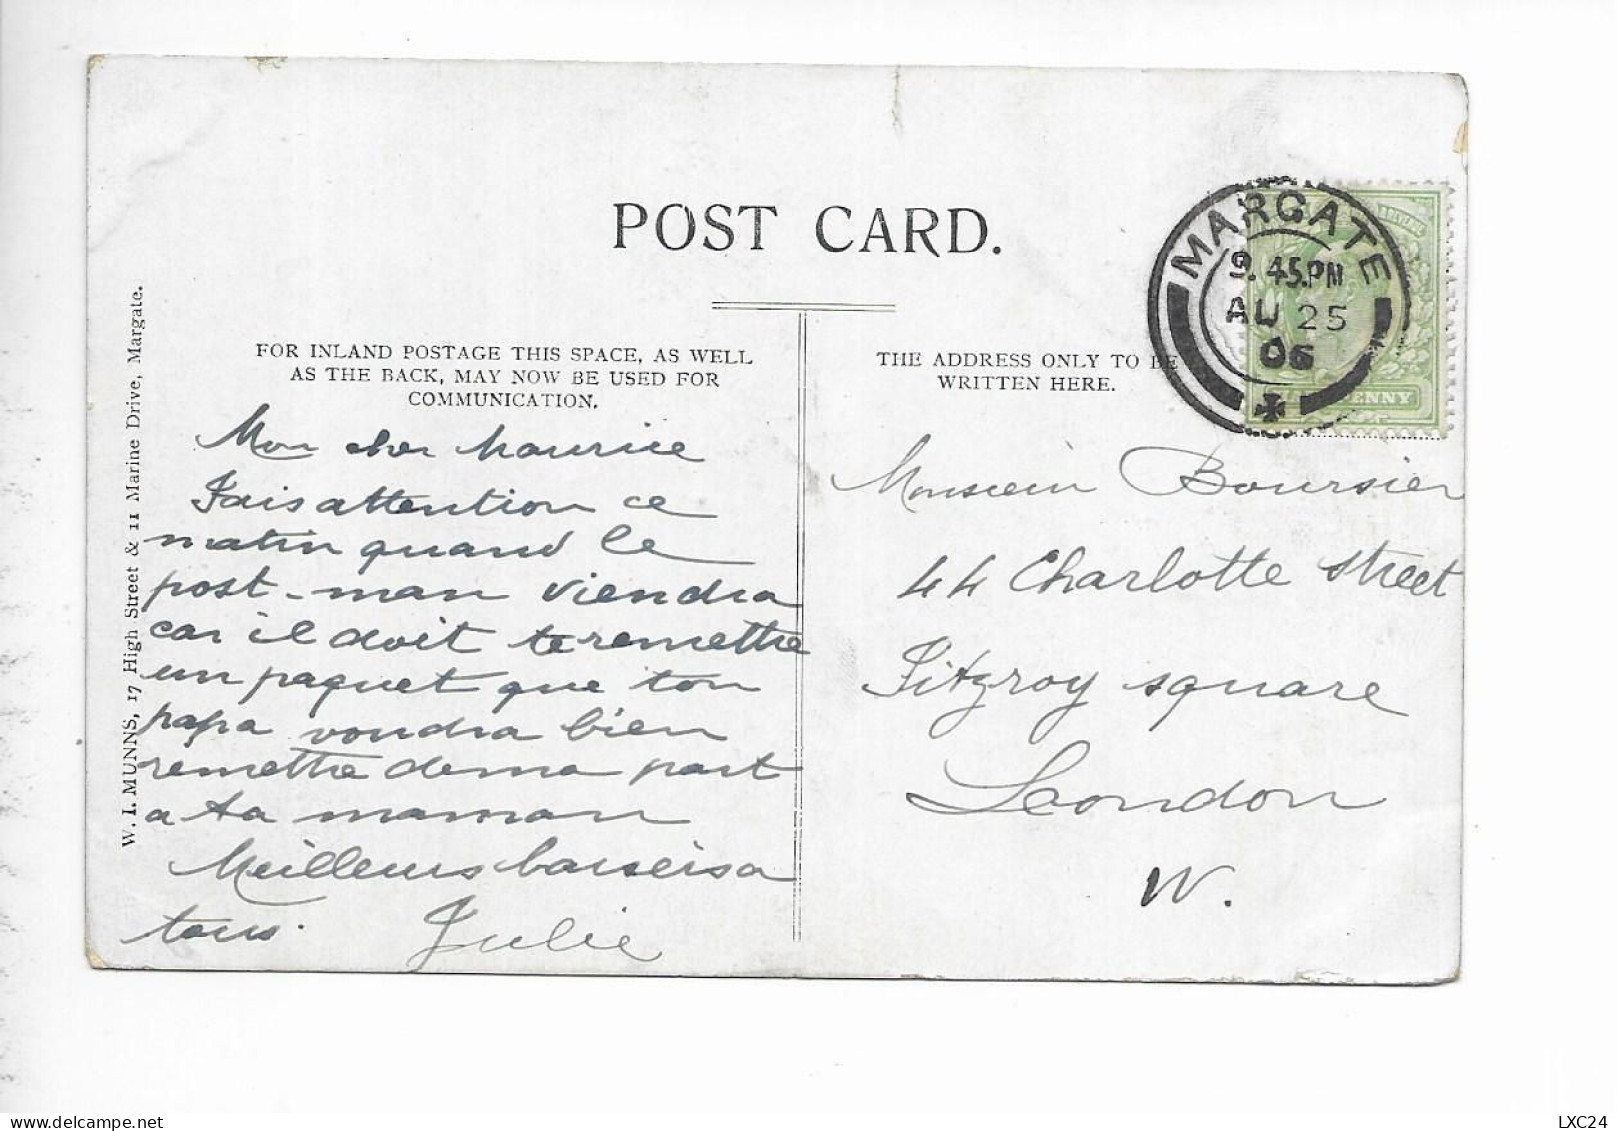 POST CARD.
MARGATE
9.45.PM
AU 25
06
ENNY
W. I. MUNNS, 17 High Street & 11 Marine Drive, Margate.
FOR INLAND POSTAGE THIS SPACE, AS WELL
AS THE BACK, MAY NOW BE USED FOR
COMMUNICATION.
THE ADDRESS ONLY TO BE
WRITTEN HERE.
Mon cher Maurice
Fais attention ce
matin quand le
post-man viendra
car il doit te remettre
un paquet que ton
papa voudra bien
remettre de ma part
a ta maman
Meilleurs baisers a
tous. Julie
Monsieur Boursier
44 Charlotte Street
Fitzroy square
London
W.
LXC24